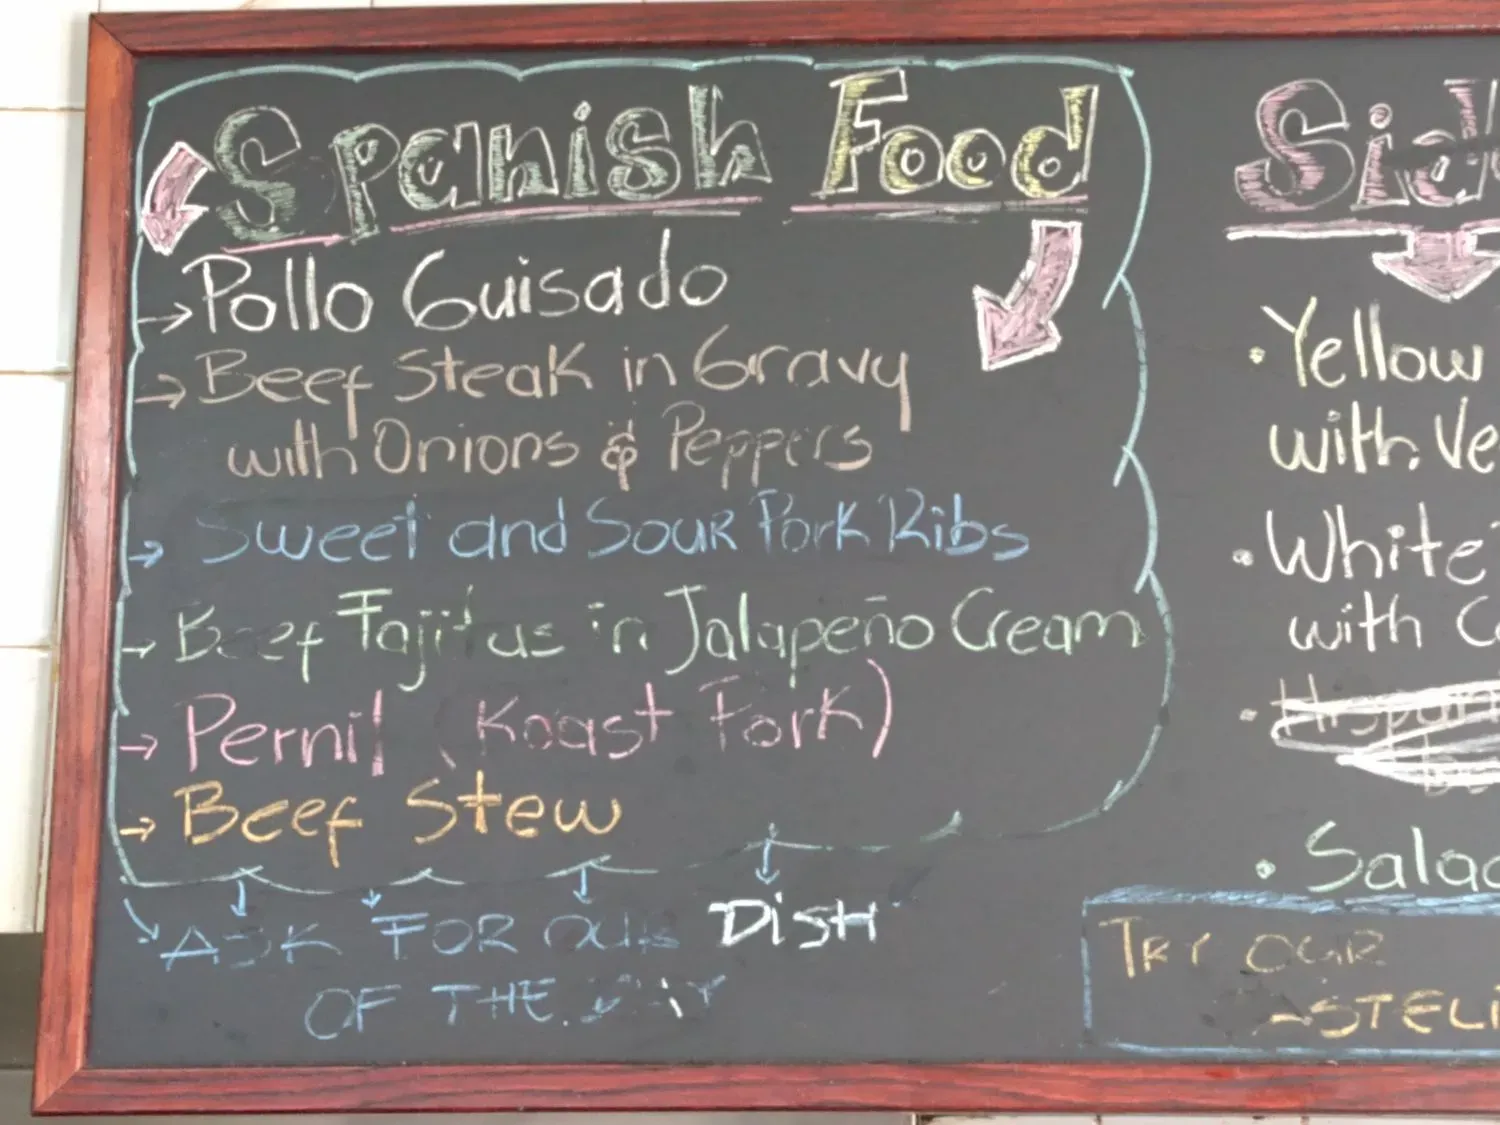 Spanish Food
→ Pollo Guisado
→ Beef Steak in Gravy
with Onions & Peppers
→ Sweet and Sour Pork Ribs
→ Beef Fajitas in Jalapeño Cream
→ Pernil (Roast Pork)
→ Beef Stew
ASK FOR OUR DISH
OF THE DAY
Sid
• Yellow
with Ve
• White
with C
• Salad
TRY OUR
STELi